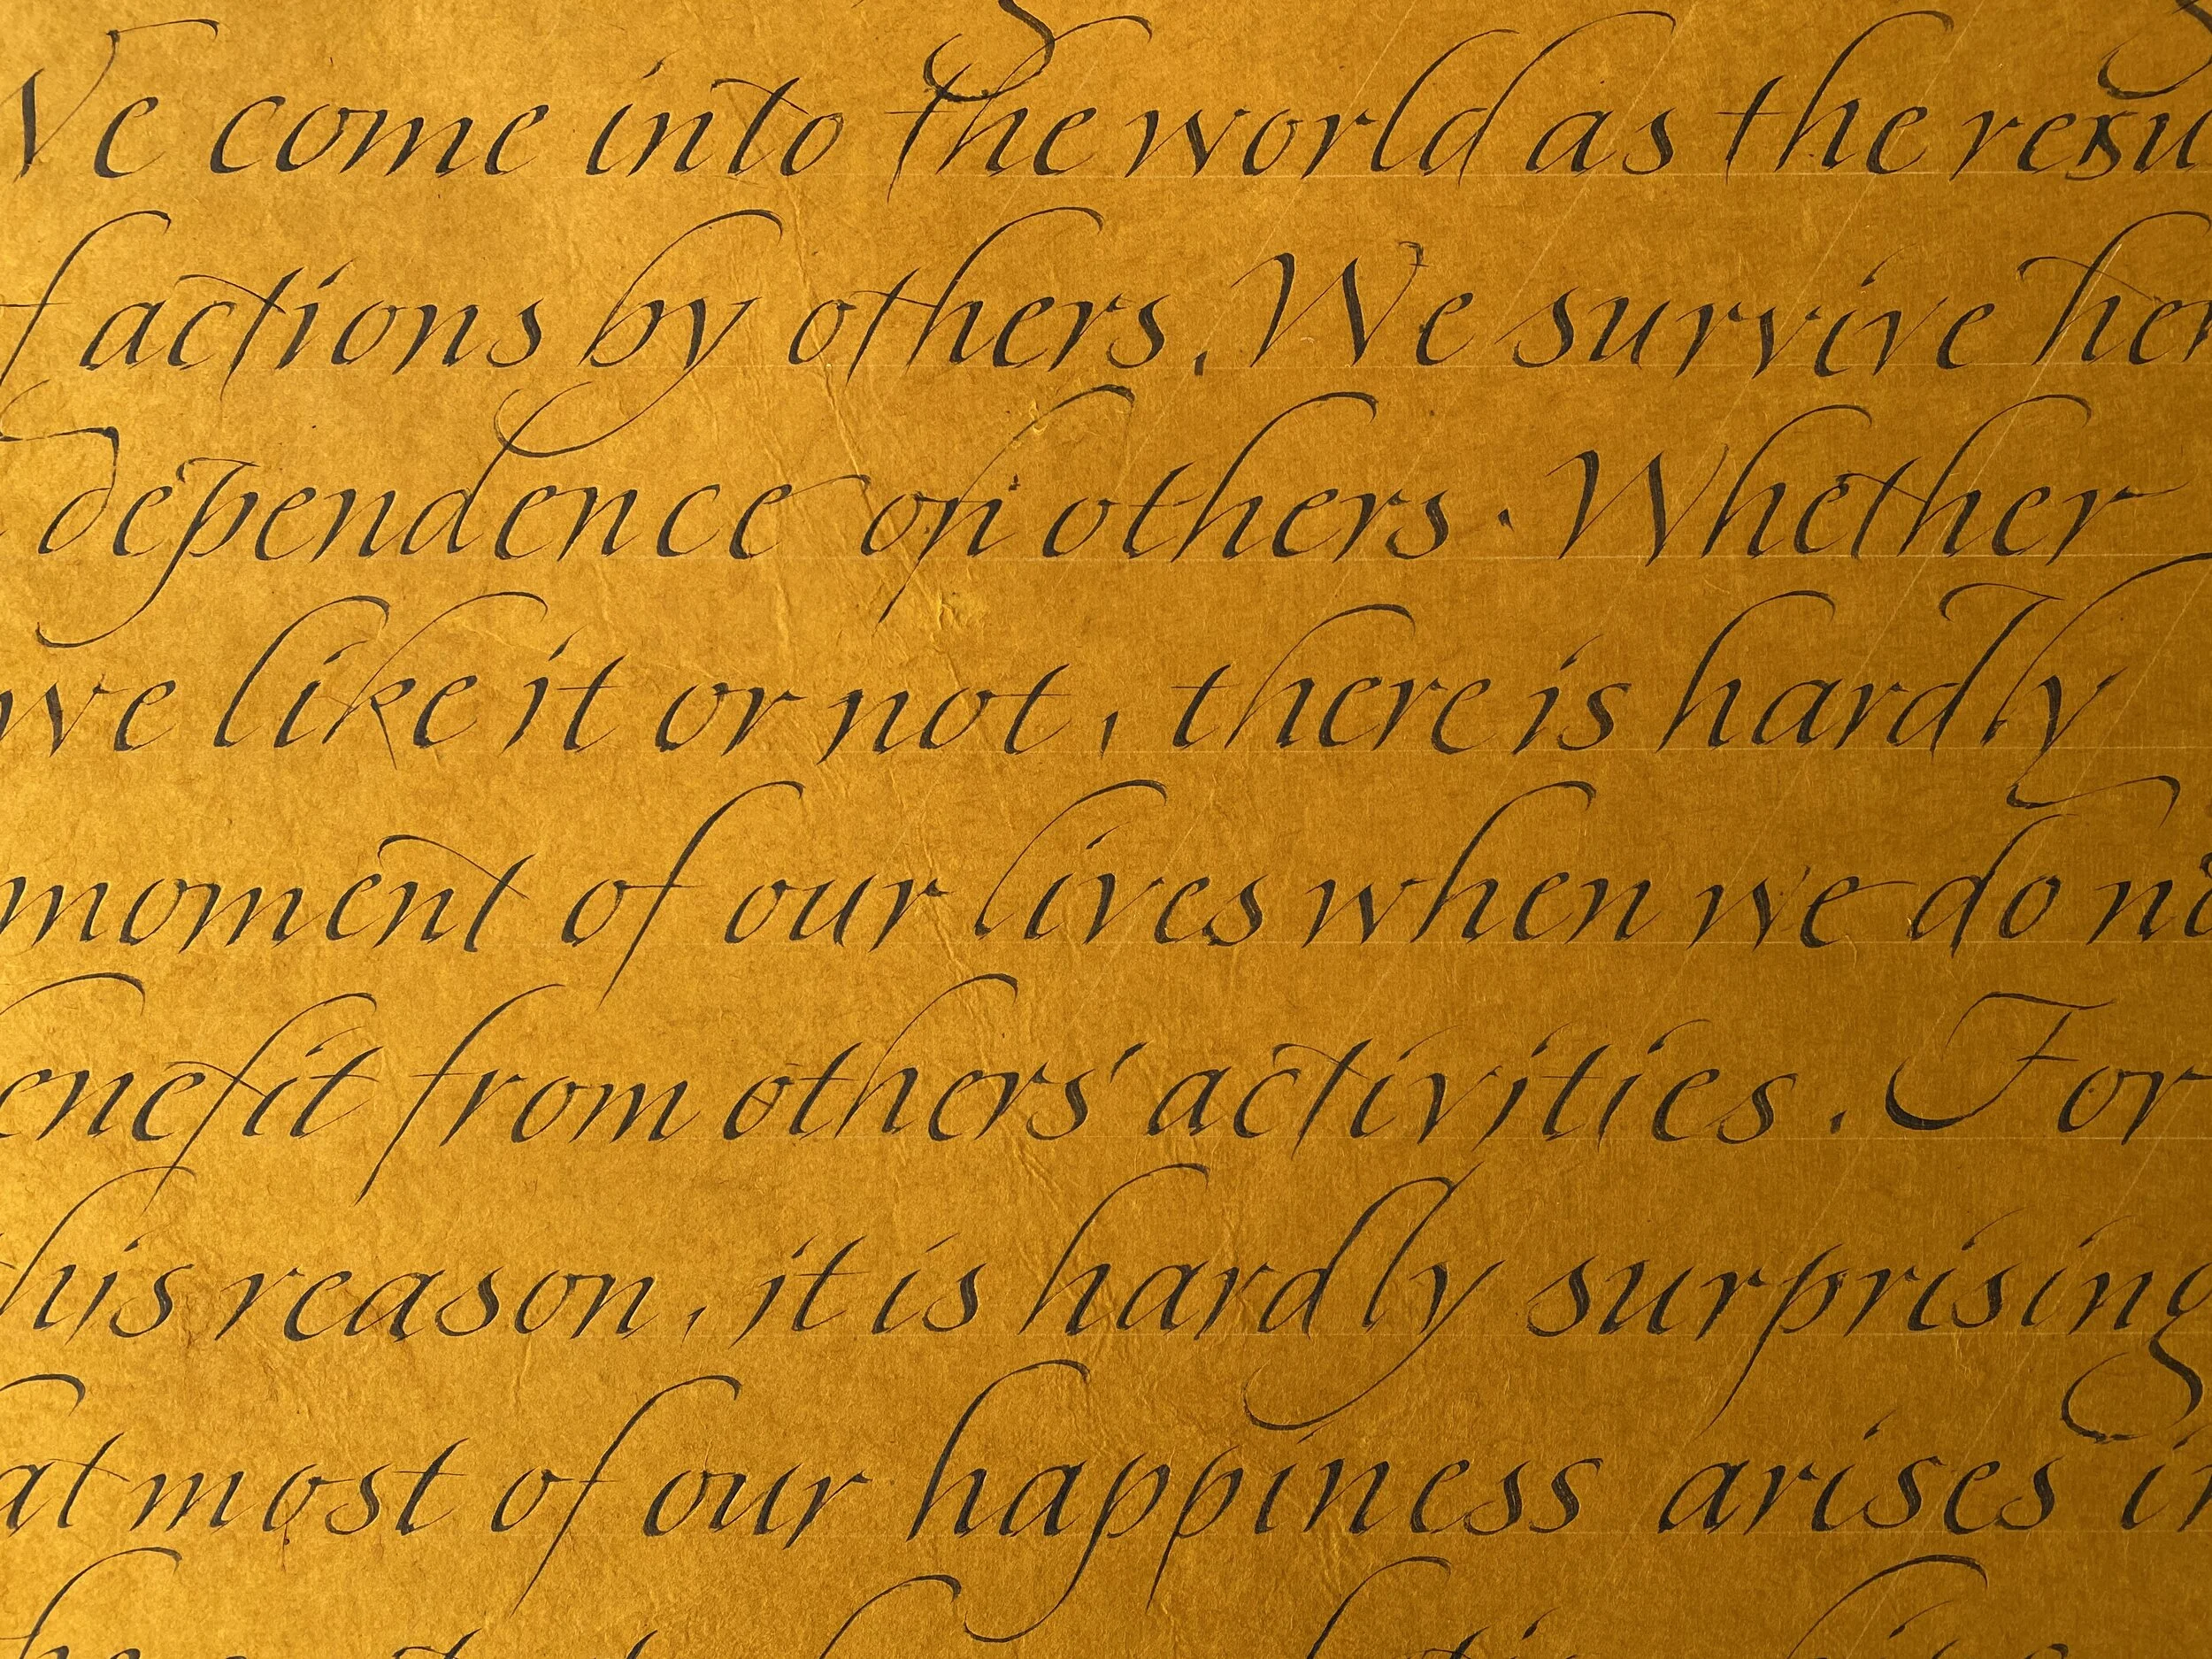 We come into the world as the resu
f actions by others. We survive her
dependence on others. Whether
we like it or not, there is hardly
moment of our lives when we do no
enefit from others' activities. For
his reason, it is hardly surprising
at most of our happiness arises in